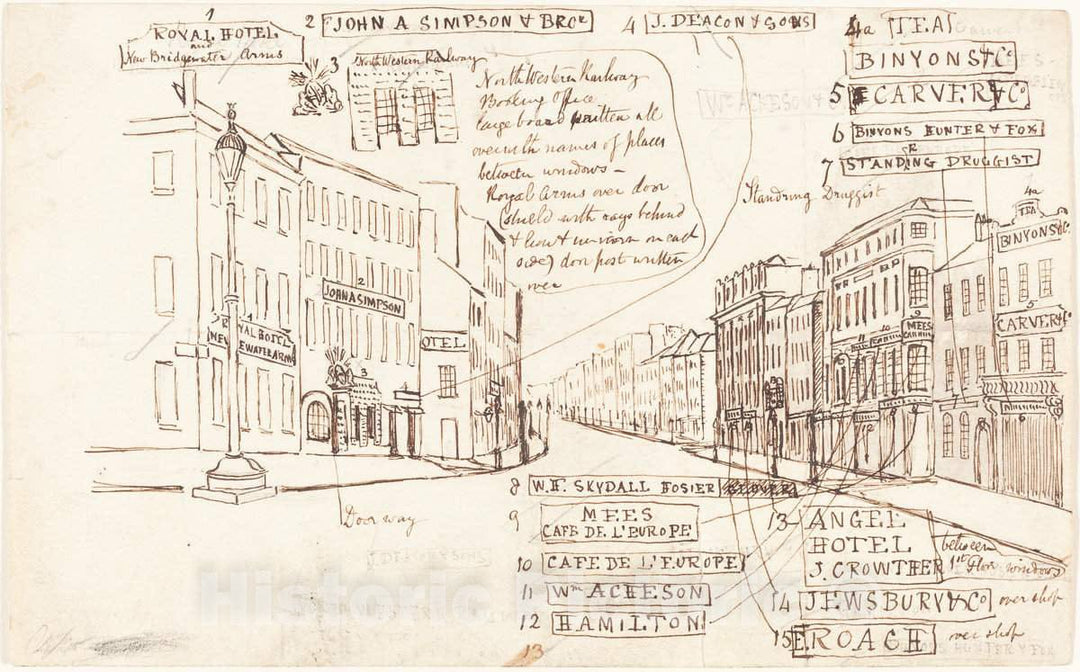 1
ROYAL HOTEL
and
New Bridgewater Arms
2 JOHN A SIMPSON & BROR
3 North Western Railway
North Western Railway
Booking Office
large board written all
over with names of places
between windows -
Royal Arms over door
(shield with rays behind
& lion & unicorn on each
side) door post written
over
4 J. DEACON & SONS
4a TEA
BINYONS & Co
5 CARVER & Co
6 BINYONS HUNTER & FOX
7 STANDRING DRUGGIST
Standring Druggist
Wm ACHESON
4a
TEA
BINYONS & Co
5
CARVER & Co
2
JOHN A SIMPSON
1
ROYAL HOTEL
NEW
EWATER ARMS
OTEL
3
4
9
MEES
10
11
12
7
6
8
Doorway
8 W.H. SKYDALL HOSIER
9 MEES
CAFE DE L'EUROPE
10 CAFE DE L'EUROPE
11 Wm ACHESON
12 HAMILTON
13 ANGEL
HOTEL
J. CROWTHER
between
1st Floor windows
14 JEWSBURY & Co over shop
15 E. ROACH over shop
J. DEACON & SONS
13
Historic Pictoric